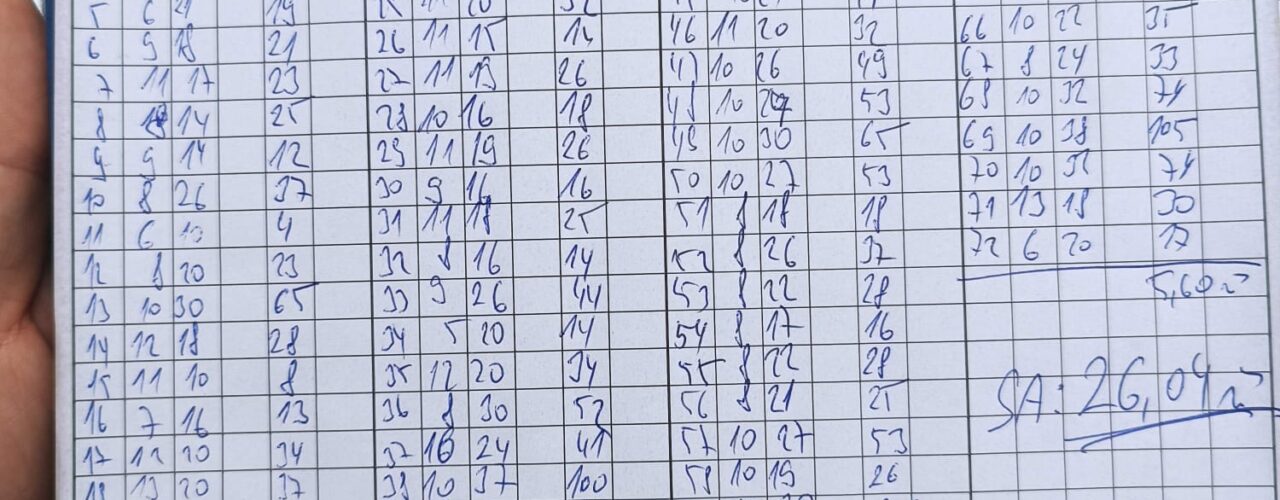 5 6 21 19 32
6 9 18 21 26 11 15 14 46 11 20 32 66 10 22 35
7 11 17 23 27 11 19 26 47 10 26 49 67 8 24 33
8 14 25 28 10 16 18 48 10 27 53 68 10 32 74
9 9 14 12 29 11 19 26 49 10 30 65 69 10 38 105
10 8 26 37 30 9 16 16 50 10 27 53 70 10 32 74
11 6 10 4 31 11 18 25 51 8 18 18 71 13 18 30
12 8 20 23 32 8 16 14 52 8 26 37 72 6 20 17
13 10 30 65 33 9 26 44 53 8 22 28 5,60
14 12 18 28 34 5 20 14 54 8 17 16
15 11 10 8 35 12 20 34 55 8 22 28
16 7 16 13 36 8 30 52 56 8 21 25 SA: 26,04
17 12 20 34 37 10 24 41 57 10 27 53
18 13 20 37 38 10 37 100 58 10 19 26